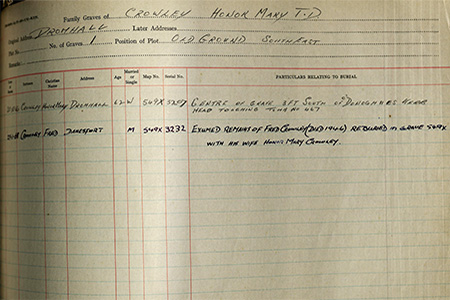 Family Graves of CROWLEY HONOR MARY T.D
Original Address DROMHALL Later Addresses
Plot No. No. of Graves 1 Position of Plot OLD GROUND SOUTH EAST
Remarks
Surname Christian Name Address Age Married or Single Map No. Serial No. PARTICULARS RELATING TO BURIAL
CROWLEY HONOR MARY DROMHALL 62 W 549X 3207 CENTRE OF GRAVE 3FT SOUTH OF O'DONOGHUES KERB
HEAD TOUCHING TOMB NO 467
CROWLEY FRED DANESFORT M 549X 3232 EXUMED REMAINS OF FRED CROWLEY (DIED 1946) REBURIED IN GRAVE 549X
WITH HIS WIFE HONOR MARY CROWLEY.